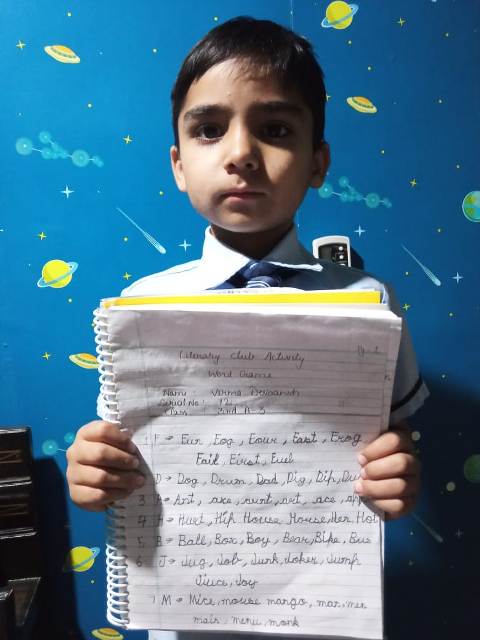 Pg-1
Literary Club Activity
Word Game
Name : Virma Devaansh
Serial No : 12
Class : 2nd A-3
1 F → Fur, Fog, Four, Fast, Frog
Fail, First, Fuel
D → Dog, Drum, Dad, Dig, Dip,
3 A → Ant, axe, aunt, art, ace,
4 H → Hurt, Hip House, House, Her, Hot
5 B → Ball, Box, Boy, Bear, Bike, Bus
6 J → Jug, Job, Junk, Joker, Jump
Juice, Joy
M → Mice, mouse mango, man, men
main, menu, monk